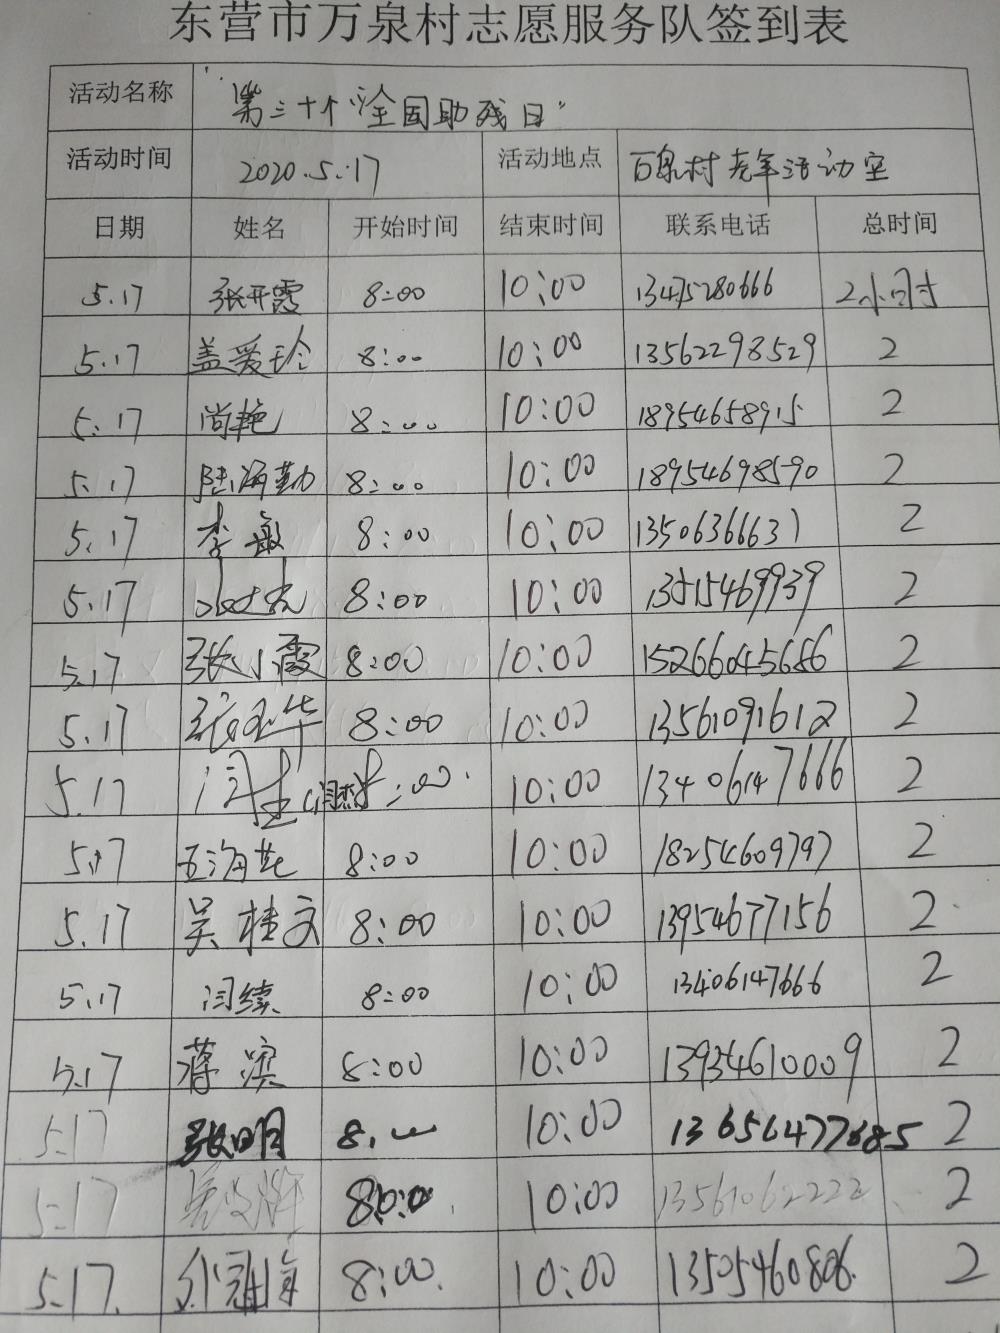 东营市万泉村志愿服务队签到表
活动名称 "第三十个"全国助残日"
活动时间 2020.5.17 活动地点 万泉村老年活动室
日期 姓名 开始时间 结束时间 联系电话 总时间
5.17 张开霞 8:00 10:00 13475280666 2小时
5.17 盖爱玲 8:00 10:00 13562298529 2
5.17 尚艳 8:00 10:00 18954658915 2
5.17 陆海勤 8:00 10:00 18954698590 2
5.17 李敏 8:00 10:00 13506366631 2
5.17 8:00 10:00 13515469939 2
5.17 张小霞 8:00 10:00 15266045686 2
5.17 张玉华 8:00 10:00 13561091612 2
5.17 闫杰 8:00 10:00 13406147666 2
5.17 王海花 8:00 10:00 18254609797 2
5.17 吴桂文 8:00 10:00 13954677156 2
5.17 闫续 8:00 10:00 13406147666 2
5.17 蒋滨 8:00 10:00 13954610009 2
5.17 张明 8:00 10:00 13656477685 2
5.17 8:00 10:00 13561062222 2
5.17 10:00 8:00 13505460806 2